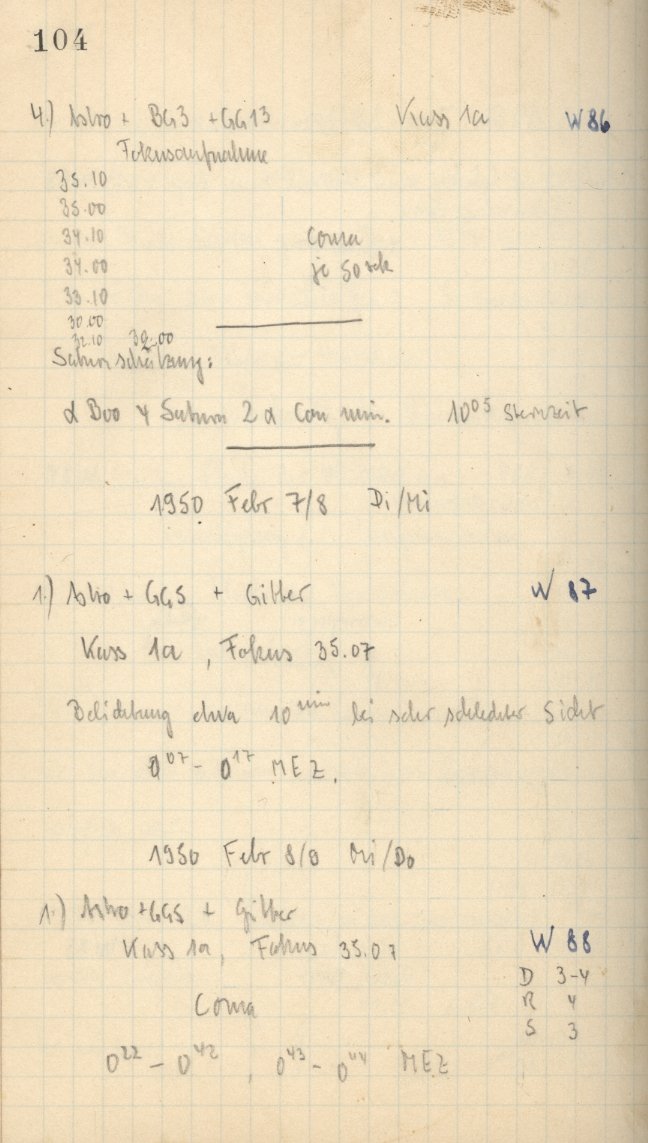 104
4.) Astro + BG3 + GG13 Kass 1a W 86
Fokusaufnahme
35.10
35.00
34.10
34.00 Coma
33.10 je 50 sek
30.00
32.10 32.00
Saturnschätzung:
α Boo 4 Saturn 2 α Can min. 10⁰⁵ Sternzeit
1950 Febr 7/8 Di/Mi
1.) Astro + GG5 + Gitter W 87
Kass 1a, Fokus 35.07
Belichtung etwa 10 min bei sehr schlechter Sicht
0⁰⁷ - 0¹⁷ MEZ.
1950 Febr 8/9 Mi/Do
1.) Astro + GG5 + Gitter
Kass 1a, Fokus 35.07 W 88
D 3-4
Coma R 4
S 3
0²² - 0⁴², 0⁴³ - 0⁴⁴ MEZ